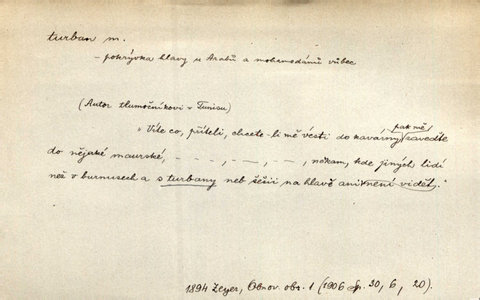 turban m.
– pokrývka hlavy u Arabů a mohamedánů vůbec
(Autor tlumočníkovi v Tunisu)
„Víte co, příteli, chcete-li mě vésti do kavárny, pak mě zaveďte
do nějaké maurské, – – –, – –, – –, někam, kde jiných lidí
než v burnusech a s turbany neb šešii na hlavě ani není vidět.“
1894 Zeyer, Obnov. obr. 1 (1906 Sp. 30, 6, 20).